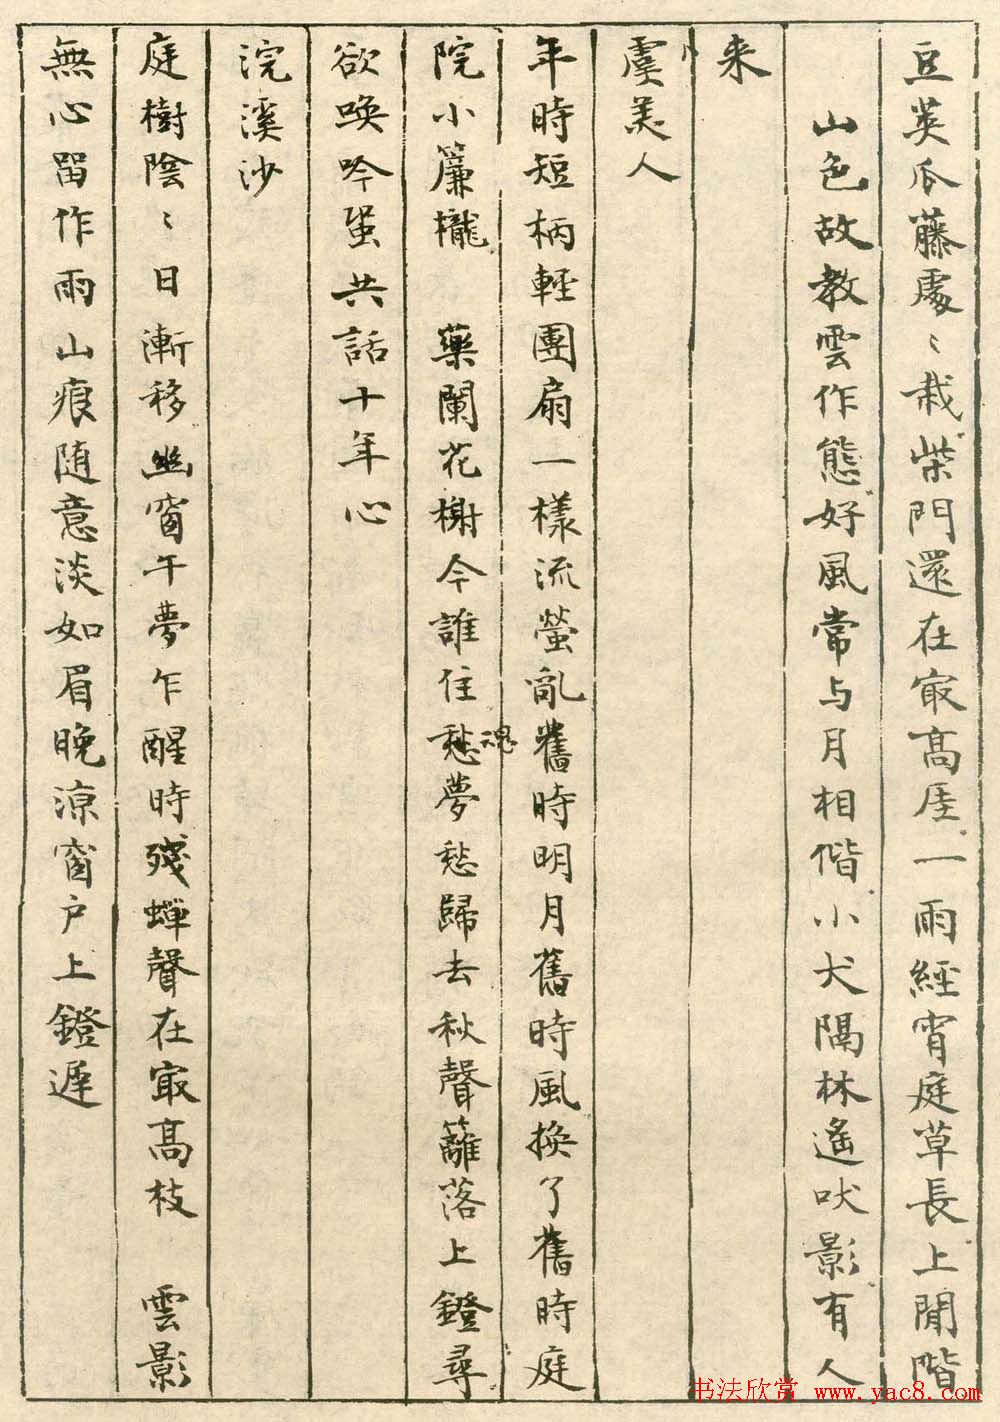 豆莢瓜藤處〻栽柴門還在㝡高厓一雨經宵庭草長上閒階
山色故教雲作態好風常与月相偕小犬隔林遙吠影有人
来
虞美人
年時短柄輕團扇一樣流螢亂舊時明月舊時風換了舊時庭
院小簾櫳　藥闌花榭今誰住愁魂夢愁歸去秋聲籬落上鐙尋
欲喚吟蛩共話十年心
浣溪沙
庭樹陰〻日漸移幽窗午夢乍醒時殘蟬聲在㝡高枝　雲影
無心留作雨山痕随意淡如眉晚涼窗户上鐙遲
书法欣赏 www.yac8.com